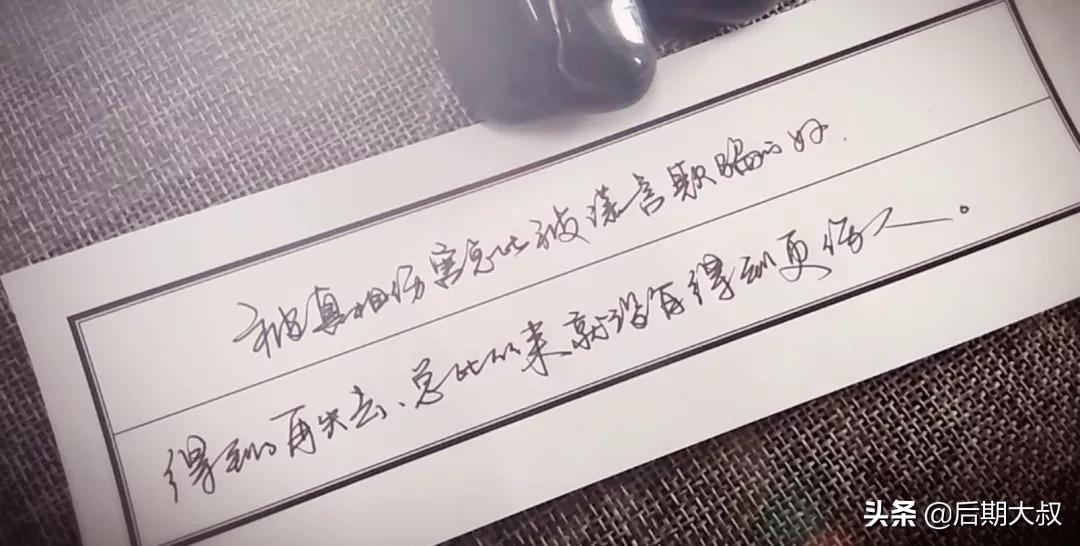 被真相伤害总比被谎言欺骗的好.
得到了再失去、总比从来就没有得到更伤人。
头条 @后期大叔